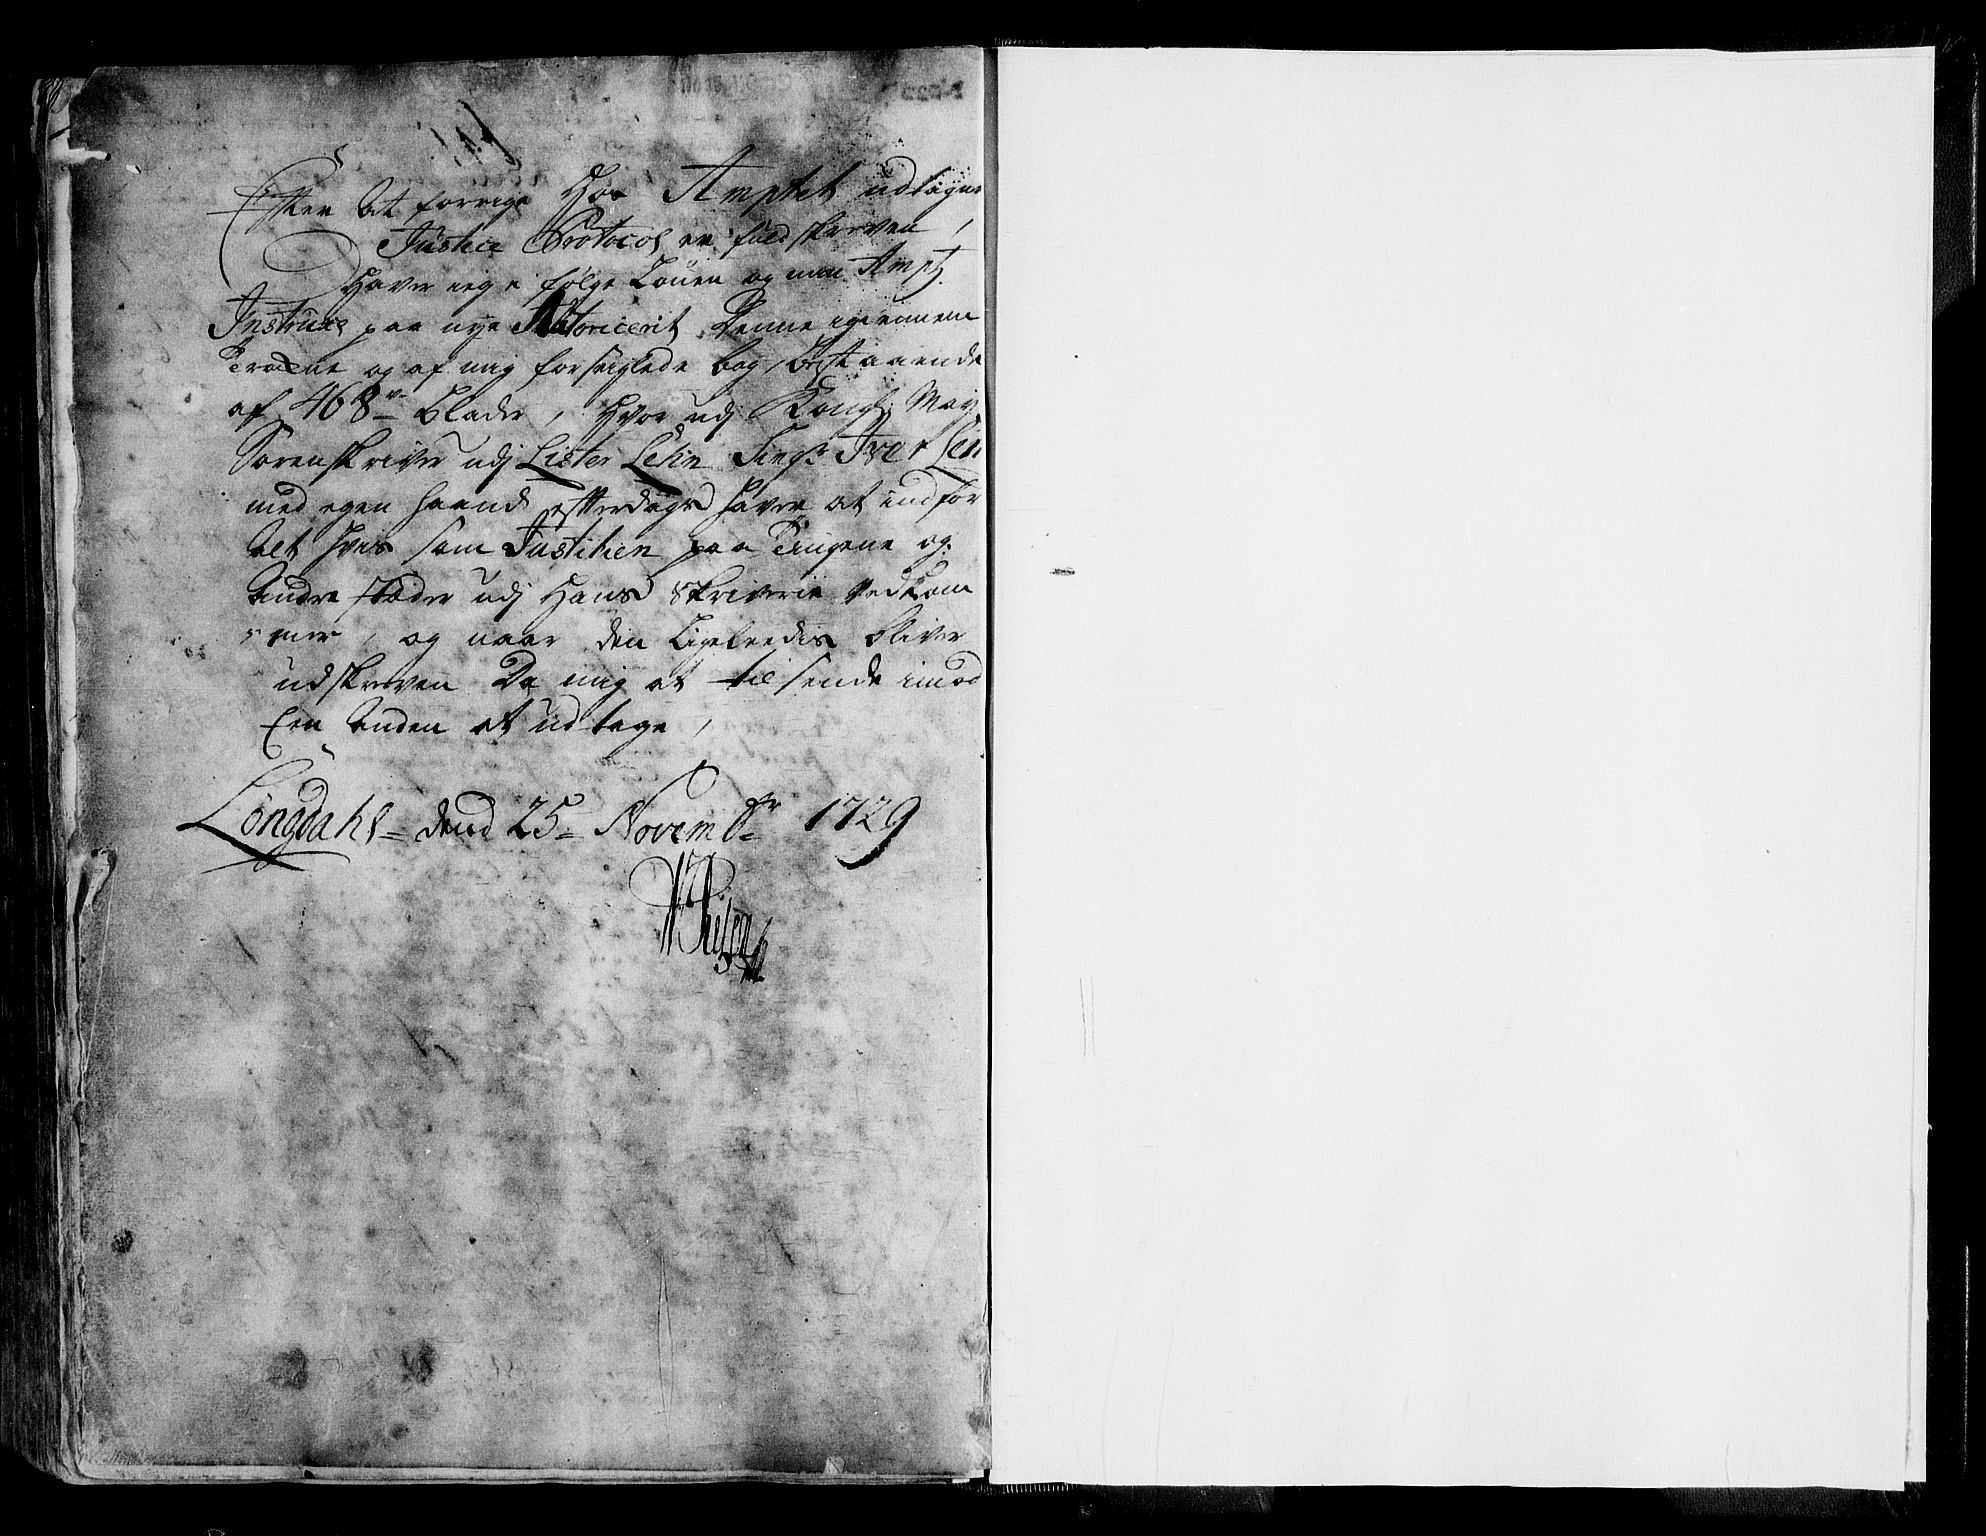 Efter at forrige Hos Amptet udtagne
Justice Protocol er fuldskreven,
Haver ieg i følge Louen og min Ampts
Instrux paa nye Autoricerit Denne igiennem
Tragne og af mig forseiglede bog, bestaaende
af 468 Blade, Hvor udj Kongl. May
Sorenskriver udj Lister Lehn Sing.r Iver
med egen haand effterdags haver at indfør
Alt hvis som Justitien paa Tingene og
Andre stæder udj Hans Skriverie vedkom
mer, og naar den Ligeleedis bliver
udskreven Da mig at til sende imod
Een Anden at udtage,
Longdahl dend 25 Novembr 1729